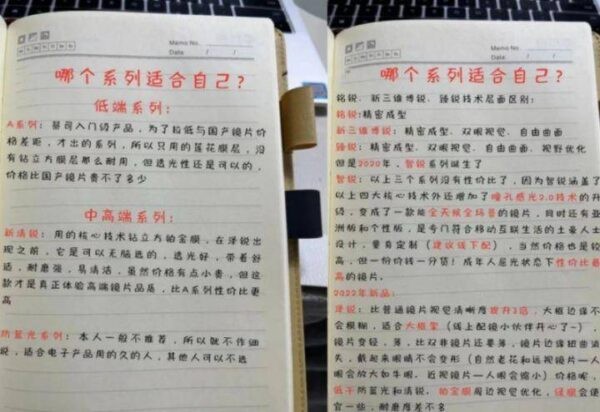 Memo No.
Date / /
哪个系列适合自己？
低端系列：
A系列：蔡司入门级产品，为了拉低与国产镜片价
格差距，才出的系列，所以只用的莲花膜层，没
有钻立方膜层那么耐用，但透光性还是可以的，
价格比国产镜片贵不了多少
中高端系列：
新清锐：用的核心技术钻立方铂金膜，在泽锐出
现之前，它是可以无脑选的，透光好，带着舒
适，耐磨强，易清洁，虽然价格有点小贵，但这
款才是真正体验高端镜片品质，比A系列性价比更
高
防蓝光系列：本人一般不推荐，所以就不作细
说，适合电子产品用的久的人，其他人可以不选
Memo No.
Date / /
哪个系列适合自己？
铭锐、新三维博锐、臻锐技术层面区别：
铭锐：精密成型
新三维博锐：精密成型、双眼视觉、自由曲面
臻锐：精密成型、双眼视觉、自由曲面、视野优化
但是2020年，智锐系列诞生了
智锐：以上三个系列没有性价比了，因为智锐涵盖了
以上四大核心技术外还增加了瞳孔感光2.0技术的升
级，变成了一款能全天候全场景的镜片，同时还有亚
洲版和个性版，是专门符合移动互联生活的土豪人士
设计，量身定制（建议线下配），当然价格也是较
高，但一份价钱一分货！成年人屈光状态下性价比最
高的镜片。
2022年新品：
泽锐：比普通镜片视觉清晰度提升3倍，大框边缘不
会模糊，适合大框架（线上配镜小伙伴开心了~），
镜片变轻，薄，比双非镜片还要薄，镜片边缘扭曲消
失，戴起来眼睛不会变形（自然老花和远视镜片—人
眼会放大如牛眼，近视镜片—人眼会缩小）价格呢，
低于防蓝光和清锐，铂金膜周边视觉优化，绿膜会便
宜一些，耐磨度差不多